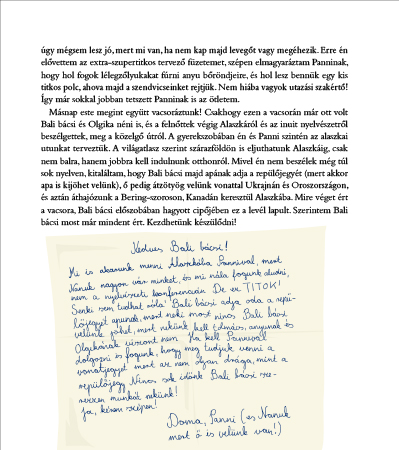 úgy mégsem lesz jó, mert mi van, ha nem kap majd levegőt vagy megéhezik. Erre én
elővettem az extra-szupertitkos tervező füzetemet, szépen elmagyaráztam Panninak,
hogy hol fogok lélegzőlyukakat fúrni anyu bőröndjeire, és hol lesz bennük egy kis
titkos polc, ahova majd a szendvicseinket rejtjük. Nem hiába vagyok utazási szakértő!
Így már sokkal jobban tetszett Panninak is az ötletem.
Másnap este megint együtt vacsoráztunk! Csakhogy ezen a vacsorán már ott volt
Bali bácsi és Olgika néni is, és a felnőttek végig Alaszkáról és az inuit nyelvészetről
beszélgettek, meg a közelgő útról. A gyerekszobában én és Panni szintén az alaszkai
utunkat terveztük. A világatlasz szerint szárazföldön is eljuthatunk Alaszkáig, csak
nem balra, hanem jobbra kell indulnunk otthonról. Mivel én nem beszélek még túl
sok nyelven, kitaláltam, hogy Bali bácsi majd apának adja a repülőjegyét (mert akkor
apa is kijöhet velünk), ő pedig átzötyög velünk vonattal Ukrajnán és Oroszországon,
és aztán áthajózunk a Bering-szoroson, Kanadán keresztül Alaszkába. Mire véget ért
a vacsora, Bali bácsi előszobában hagyott cipőjében ez a levél lapult. Szerintem Bali
bácsi most már mindent ért. Kezdhetünk készülődni!
Kedves Bali bácsi!
Mi is akarunk menni Alaszkába Pannival, mert
Nanuk nagyon vár minket, és mi nála fogunk aludni,
nem a nyelvészeti konferencián. De ez TITOK!
Senki sem tudhat róla! Bali bácsi adja oda a repü-
lőjegyét apunak, mert neki most nincs. Bali bácsi
velünk jöhet, mert nekünk kell tolmács, anyunak és
Olgikának viszont nem. Ha kell Pannival
dolgozni is fogunk, hogy meg tudjuk venni a
vonatjegyet mert az nem olyan drága, mint a
repülőjegy. Nincs sok időnk Bali bácsi sze-
rezzen munkát nekünk!
Jó, kérem szépen!
Doma, Panni (és Nanuk
mert ő is velünk van!)